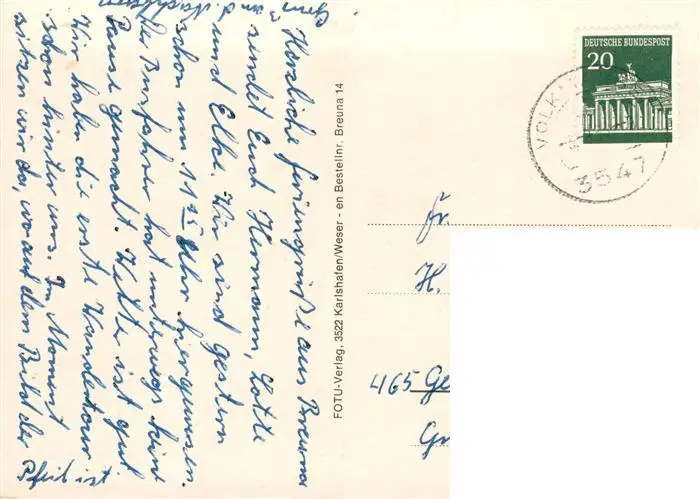 Herzliche Feriengrüße aus Breuna
sendet Euch Hermann, Lotte
und Elke. Wir sind gestern
schon um 11 Uhr hiergewesen.
Der Busfahrer hat unterwegs keine
Pause gemacht. Wetter ist gut
Wir haben die erste Wandertour
schon hinter uns. Im Moment
sitzen wir da, wo auf dem Bild der
Pfeil ist.
und
FOTU-Verlag, 3522 Karlshafen/Weser - en Bestellnr. Breuna 14
DEUTSCHE BUNDESPOST
20
VOLKM
3547
Fr.
H.
465 Ge
Gr